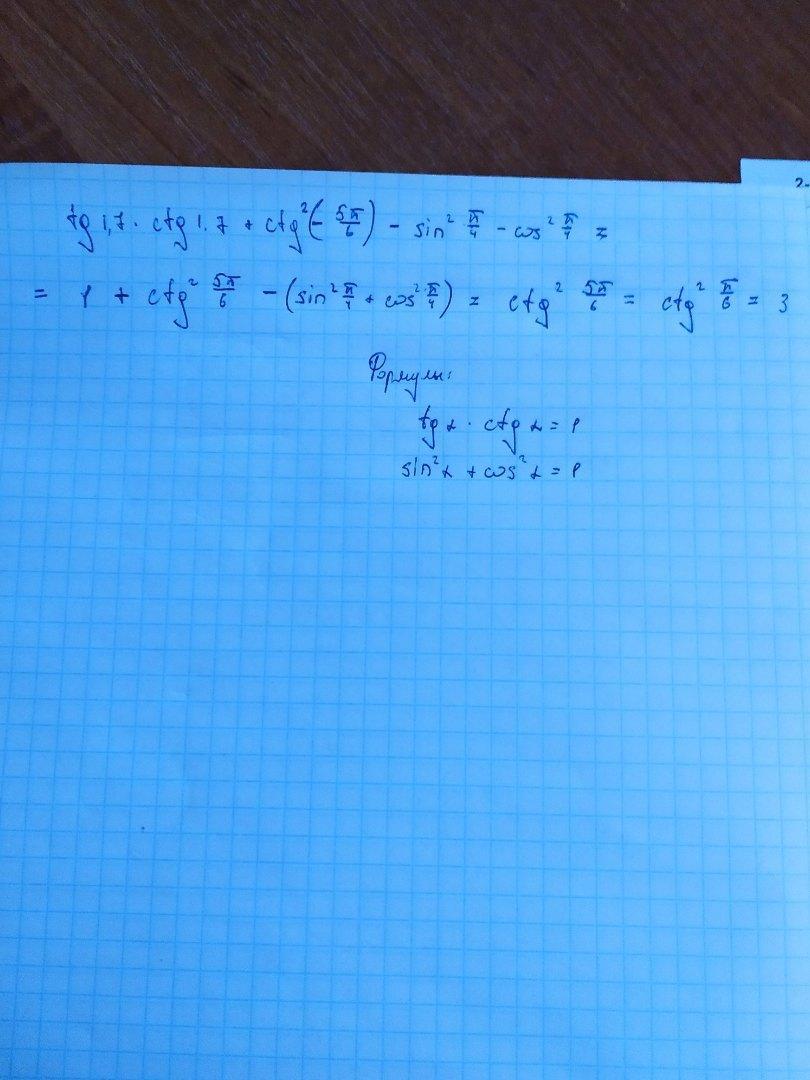 tg 1,7 · ctg 1.7 + ctg²(-5π/6) - sin² π/4 - cos² π/4 =
= 1 + ctg² 5π/6 - (sin² π/4 + cos² π/4) = ctg² 5π/6 = ctg² π/6 = 3
Формулы:
tg α · ctg α = 1
sin² α + cos² α = 1